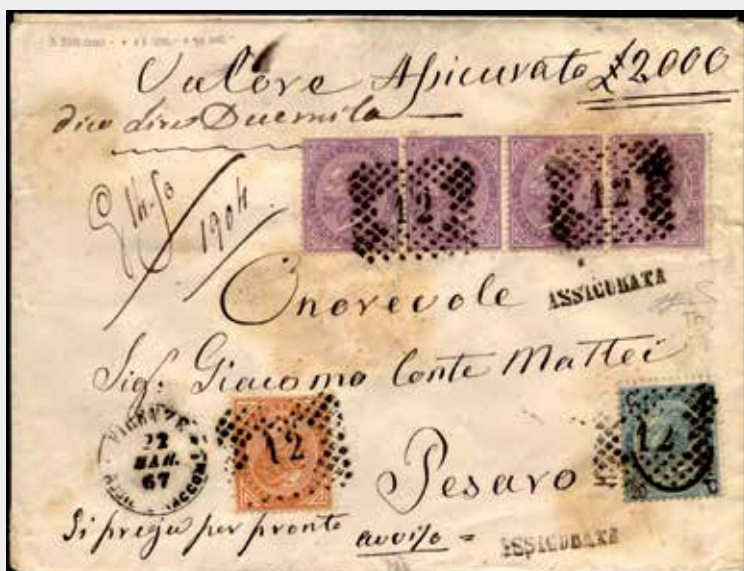 Valore Assicurato £2.000
dico Lire Duemila
12 12
1904
Onorevole
ASSICURATA
Sig. Giacomo Conte Mattei
FIRENZE
22
MAR.
67
12
12
Pesaro
Si prega per pronto avviso =
ASSICURATA